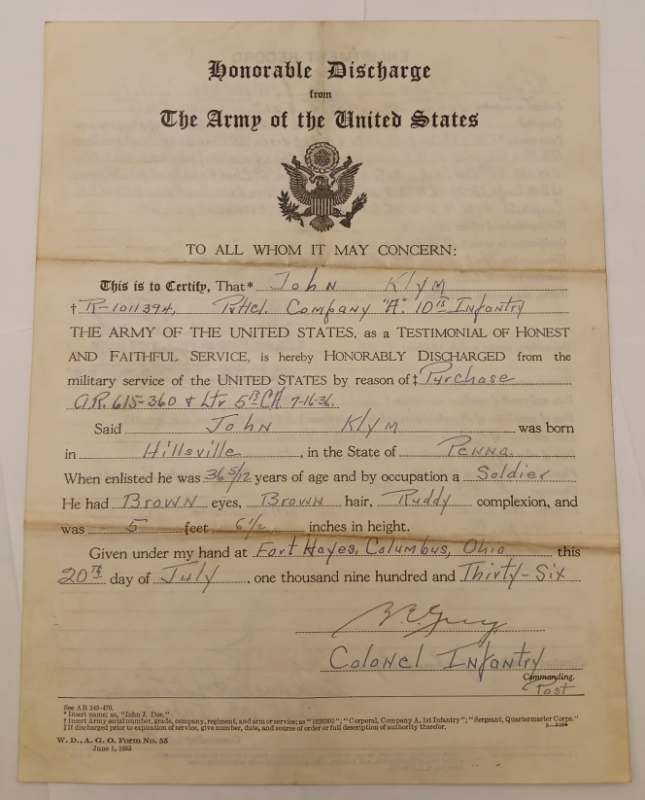 Honorable Discharge
from
The Army of the United States
TO ALL WHOM IT MAY CONCERN:
This is to Certify, That* John Klym
† R-1011394, Company "A". 10th Infantry
THE ARMY OF THE UNITED STATES, as a TESTIMONIAL OF HONEST
AND FAITHFUL SERVICE, is hereby HONORABLY DISCHARGED from the
military service of the UNITED STATES by reason of ‡ Purchase
A.R. 615-360 & Ltr 5th CA 7-16-36.
Said John Klym was born
in Hillsville, in the State of Penna.
When enlisted he was 36 5/12 years of age and by occupation a Soldier
He had Brown eyes, Brown hair, Ruddy complexion, and
was 5 feet 6 1/2 inches in height.
Given under my hand at Fort Hayes, Columbus, Ohio this
20th day of July, one thousand nine hundred and Thirty-Six
Colonel Infantry
Commanding.
Post
See AR 345-470.
* Insert name; as, "John J. Doe."
† Insert Army serial number, grade, company, regiment, and arm or service; as "Corporal, Company A, 1st Infantry"; "Sergeant, Quartermaster Corps."
‡ If discharged prior to expiration of service, give number, date, and source of order or full description of authority therefor.
W. D., A. G. O. Form No. 55
June 1, 1933